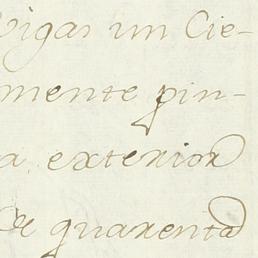 vigas un Cie-
mente pin-
a exterior
de quarenta